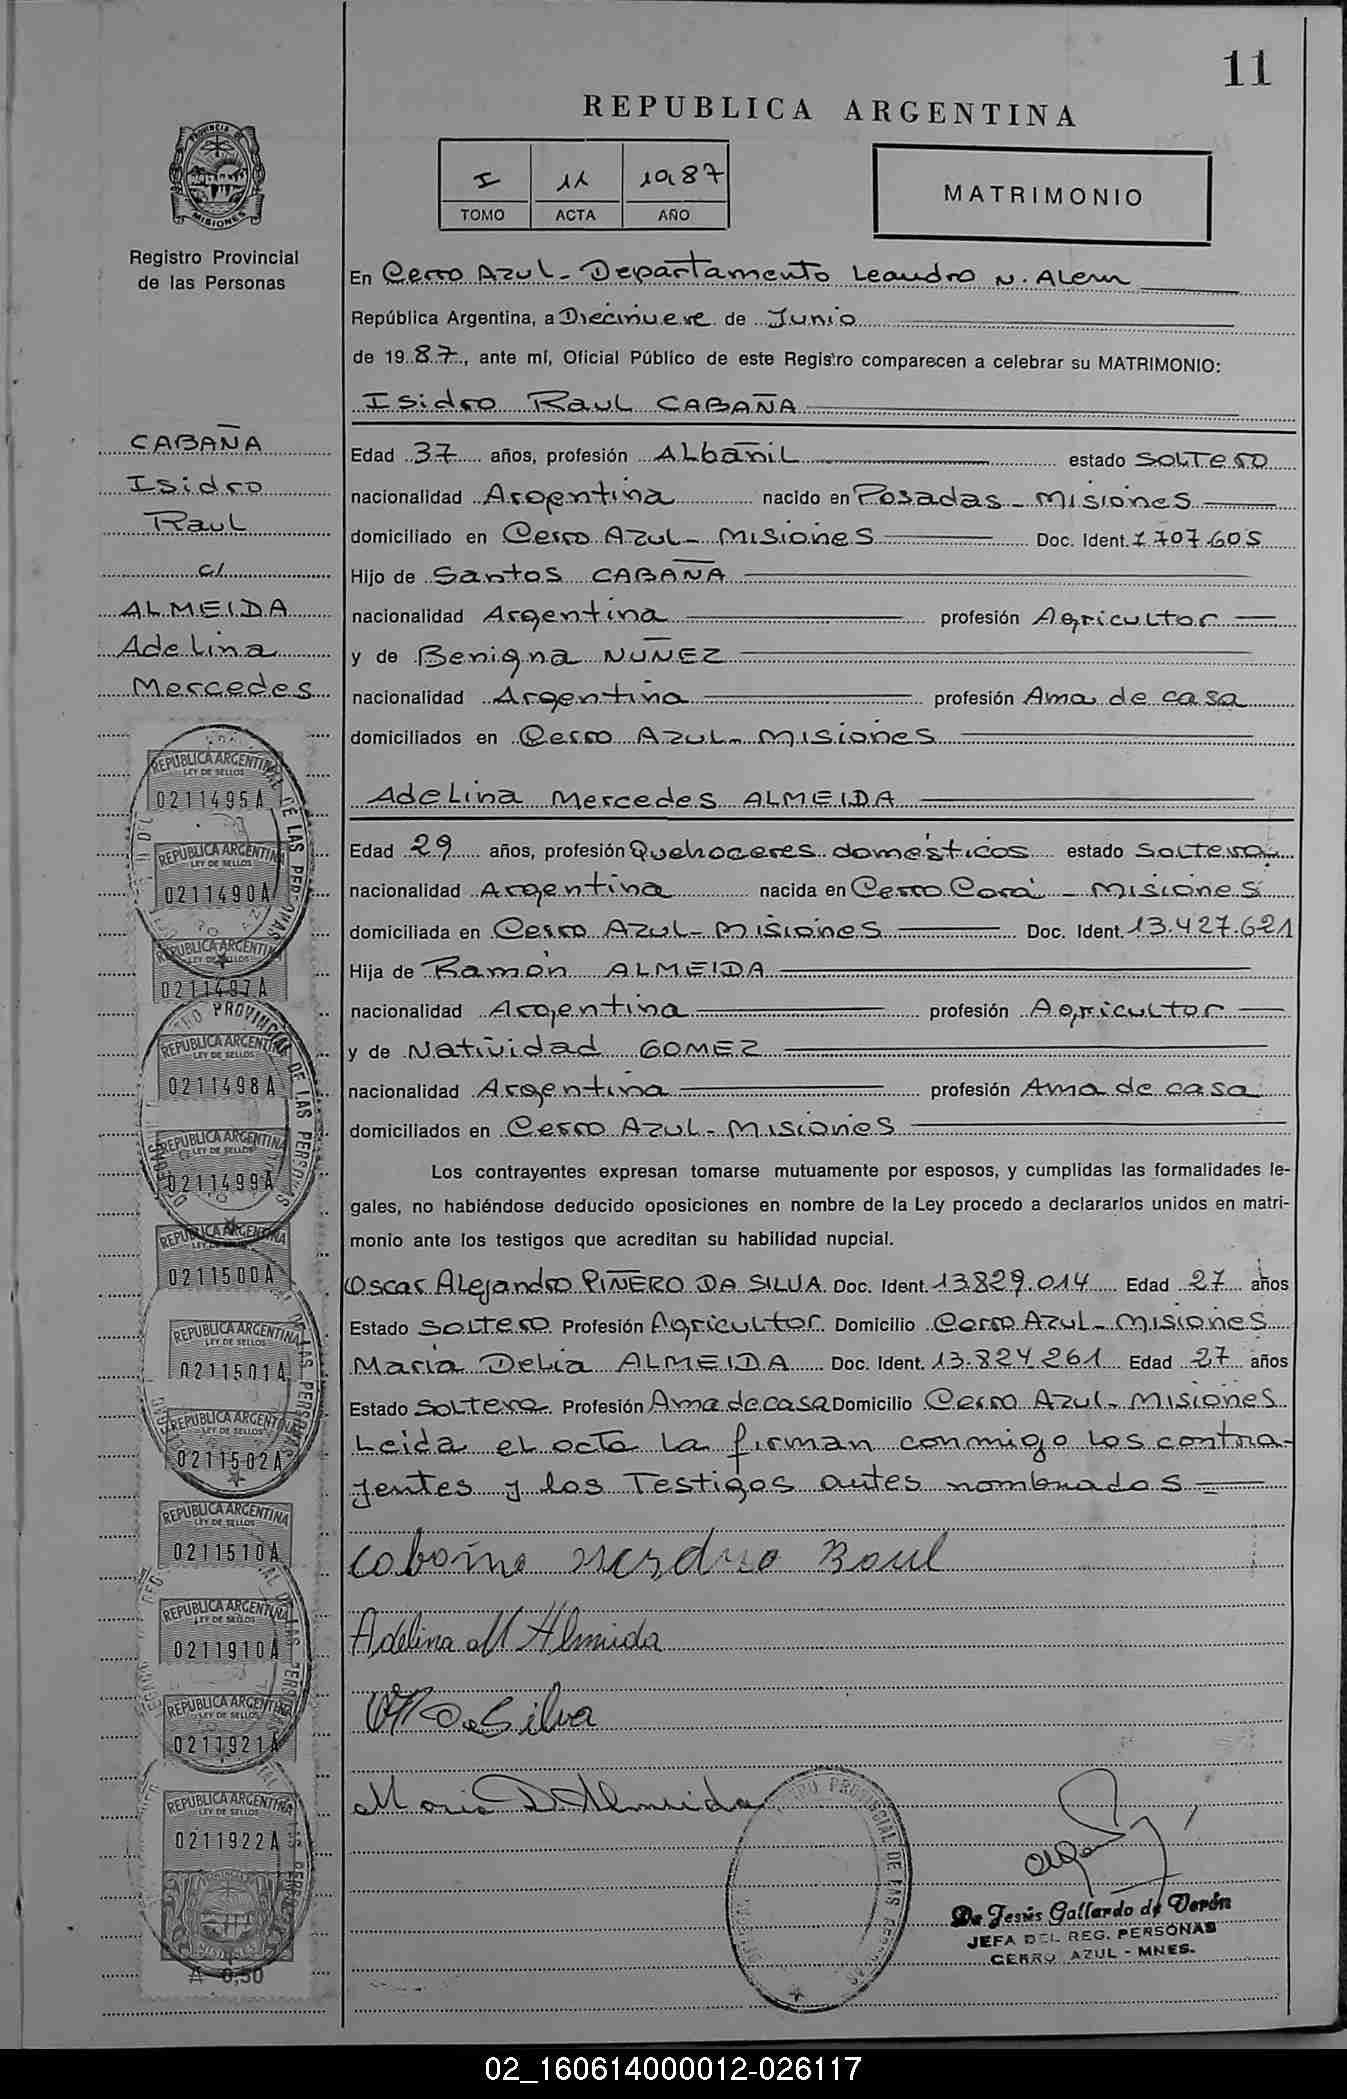 11
REPUBLICA ARGENTINA
I 11 1987
TOMO ACTA AÑO
MATRIMONIO
PROVINCIA DE
MISIONES
Registro Provincial
de las Personas
CABAÑA
Isidro
Raul
c/
ALMEIDA
Adelina
Mercedes
REPUBLICA ARGENTINA
LEY DE SELLOS
0211495A
REPUBLICA ARGENTINA
LEY DE SELLOS
0211490A
REPUBLICA ARGENTINA
LEY DE SELLOS
0211497A
REPUBLICA ARGENTINA
LEY DE SELLOS
0211498A
REPUBLICA ARGENTINA
LEY DE SELLOS
0211499A
REPUBLICA ARGENTINA
0211500A
REPUBLICA ARGENTINA
LEY DE SELLOS
0211501A
REPUBLICA ARGENTINA
LEY DE SELLOS
0211502A
REPUBLICA ARGENTINA
LEY DE SELLOS
0211510A
REPUBLICA ARGENTINA
LEY DE SELLOS
0211910A
REPUBLICA ARGENTINA
LEY DE SELLOS
0211921A
REPUBLICA ARGENTINA
LEY DE SELLOS
0211922A
A 0,50
En Cerro Azul - Departamento Leandro N. Alem
República Argentina, a Diecinueve de Junio
de 19 87, ante mí, Oficial Público de este Registro comparecen a celebrar su MATRIMONIO:
Isidro Raul CABAÑA
Edad 37 años, profesión Albañil estado Soltero
nacionalidad Argentina nacido en Posadas - Misiones
domiciliado en Cerro Azul - Misiones Doc. Ident. 7.707.605
Hijo de Santos CABAÑA
nacionalidad Argentina profesión Agricultor
y de Benigna NUÑEZ
nacionalidad Argentina profesión Ama de casa
domiciliados en Cerro Azul - Misiones
Adelina Mercedes ALMEIDA
Edad 29 años, profesión Quehaceres domésticos estado Soltera
nacionalidad Argentina nacida en Cerro Corá - Misiones
domiciliada en Cerro Azul - Misiones Doc. Ident. 13.427.621
Hija de Ramón ALMEIDA
nacionalidad Argentina profesión Agricultor
y de Natividad GOMEZ
nacionalidad Argentina profesión Ama de casa
domiciliados en Cerro Azul - Misiones
Los contrayentes expresan tomarse mutuamente por esposos, y cumplidas las formalidades le-
gales, no habiéndose deducido oposiciones en nombre de la Ley procedo a declararlos unidos en matri-
monio ante los testigos que acreditan su habilidad nupcial.
Oscar Alejandro PIÑERO DA SILVA Doc. Ident. 13.829.014 Edad 27 años
Estado Soltero Profesión Agricultor Domicilio Cerro Azul - Misiones
Maria Delia ALMEIDA Doc. Ident. 13.824.261 Edad 27 años
Estado Soltera Profesión Ama de casa Domicilio Cerro Azul - Misiones
Leida el acta la firman conmigo los contra-
yentes y los Testigos antes nombrados
Adelina M Almeida
Da Silva
Maria D. Almeida
De Jesús Gallardo de Verón
JEFA DEL REG. PERSONAS
CERRO AZUL - MNES.
02_160614000012-026117